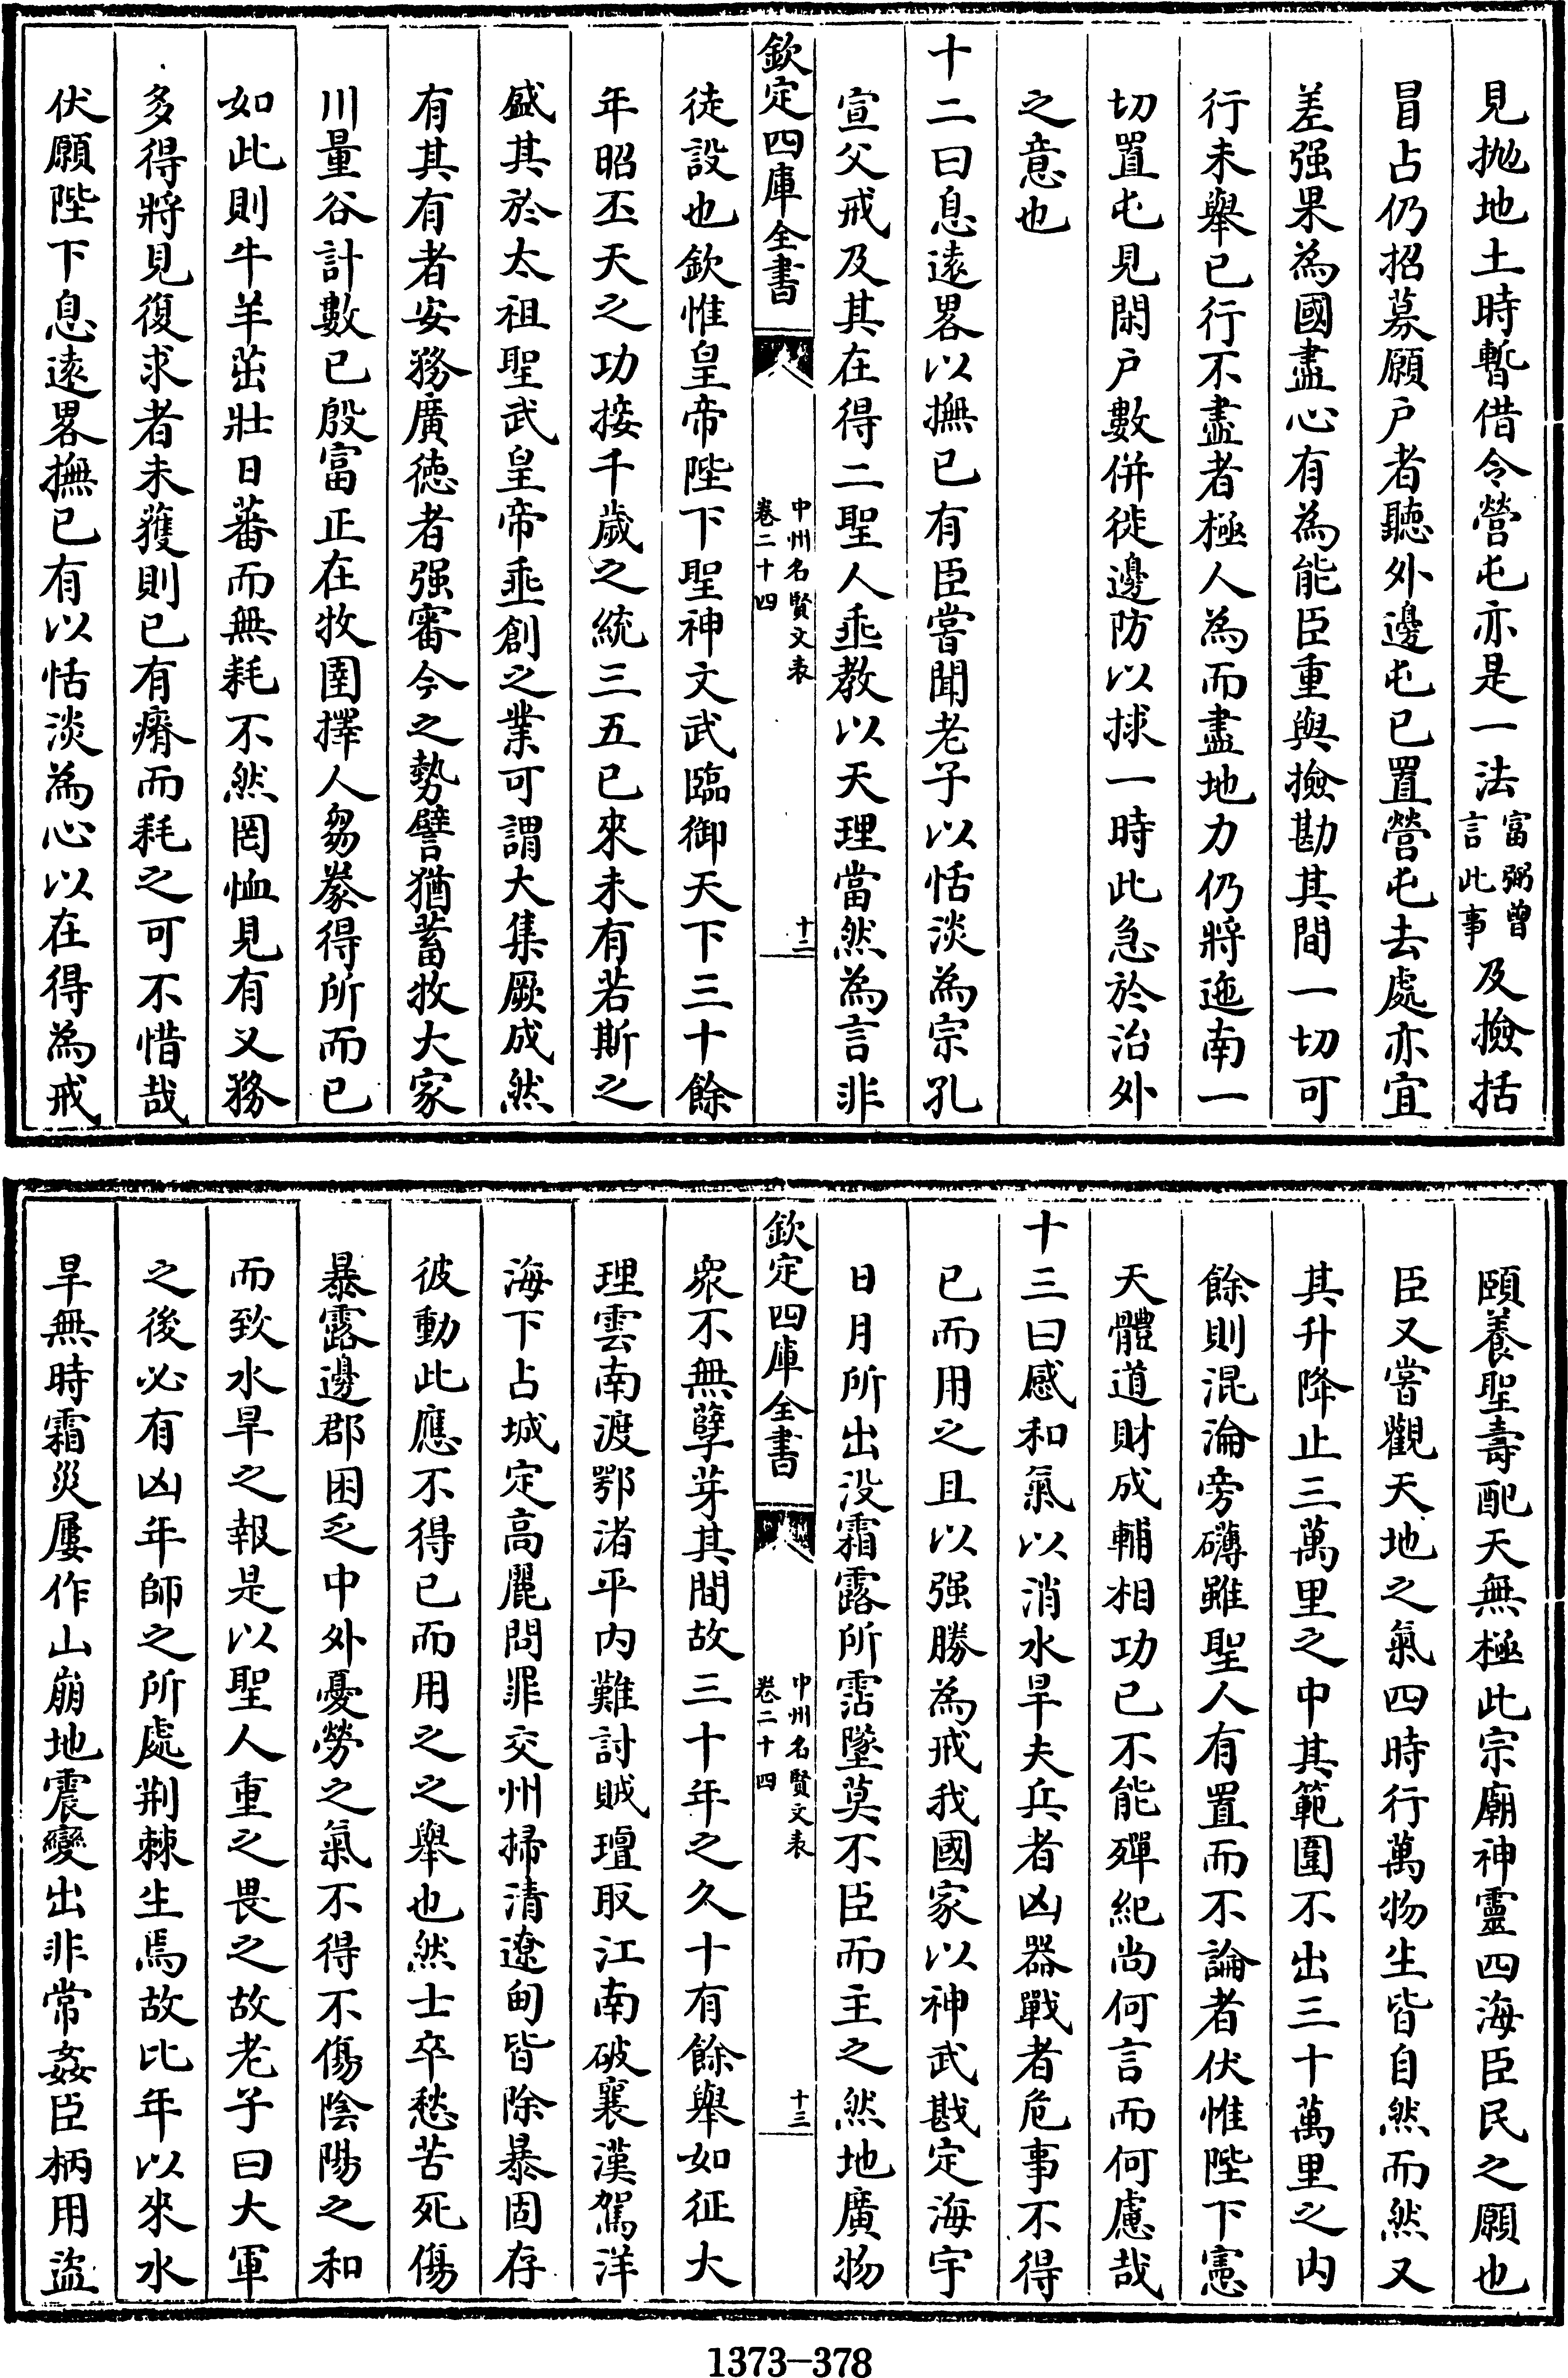 見抛地土時暫借令營屯亦是一法富弼曾言此事及撿括
冒占仍招募願户者聽外邊屯已置營屯去處亦宜
差强果為國盡心有為能臣重與撿勘其間一切可
行未舉已行不盡者極人為而盡地力仍將迤南一
切置屯見閑户數併徙邊防以捄一時此急於治外
之意也
十二曰息遠畧以撫已有臣嘗聞老子以恬淡為宗孔
宣父戒及其在得二聖人垂教以天理當然為言非
欽定四庫全書
中州名賢文表
卷二十四
十二
徒設也欽惟皇帝陛下聖神文武臨御天下三十餘
年昭丕天之功接千歲之統三五已來未有若斯之
盛其於太祖聖武皇帝垂創之業可謂大集厥成然
有其有者安務廣德者强審今之勢譬猶蓄牧大家
川量谷計數已殷富正在牧圉擇人芻豢得所而已
如此則牛羊茁壯日蕃而無耗不然罔恤見有又務
多得將見復求者未獲則已有瘠而耗之可不惜哉
伏願陛下息遠畧撫已有以恬淡為心以在得為戒
頤養聖壽配天無極此宗廟神靈四海臣民之願也
臣又嘗觀天地之氣四時行萬物生皆自然而然又
其升降止三萬里之中其範圍不出三十萬里之内
餘則混淪旁礴雖聖人有置而不論者伏惟陛下憲
天體道財成輔相功已不能殫紀尚何言而何慮哉
十三曰感和氣以消水旱夫兵者凶器戰者危事不得
已而用之且以强勝為戒我國家以神武戡定海宇
日月所出没霜露所霑墜莫不臣而主之然地廣物
欽定四庫全書
中州名賢文表
卷二十四
十三
衆不無孽芽其間故三十年之久十有餘舉如征大
理雲南渡鄂渚平内難討賊璮取江南破襄漢駕洋
海下占城定高麗問罪交州掃清遼甸皆除暴固存
彼動此應不得已而用之之舉也然士卒愁苦死傷
暴露邊郡困乏中外憂勞之氣不得不傷陰陽之和
而致水旱之報是以聖人重之畏之故老子曰大軍
之後必有凶年師之所處荆棘生焉故比年以來水
旱無時霜災屢作山崩地震變出非常姦臣柄用盜
1373-378